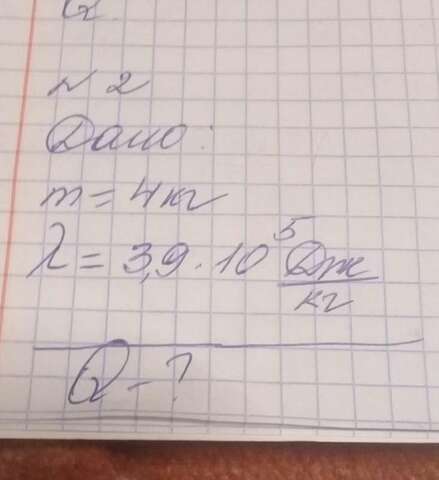 № 2
Дано:
m = 4 кг
λ = 3,9 · 10⁵ Дж/кг
Q - ?